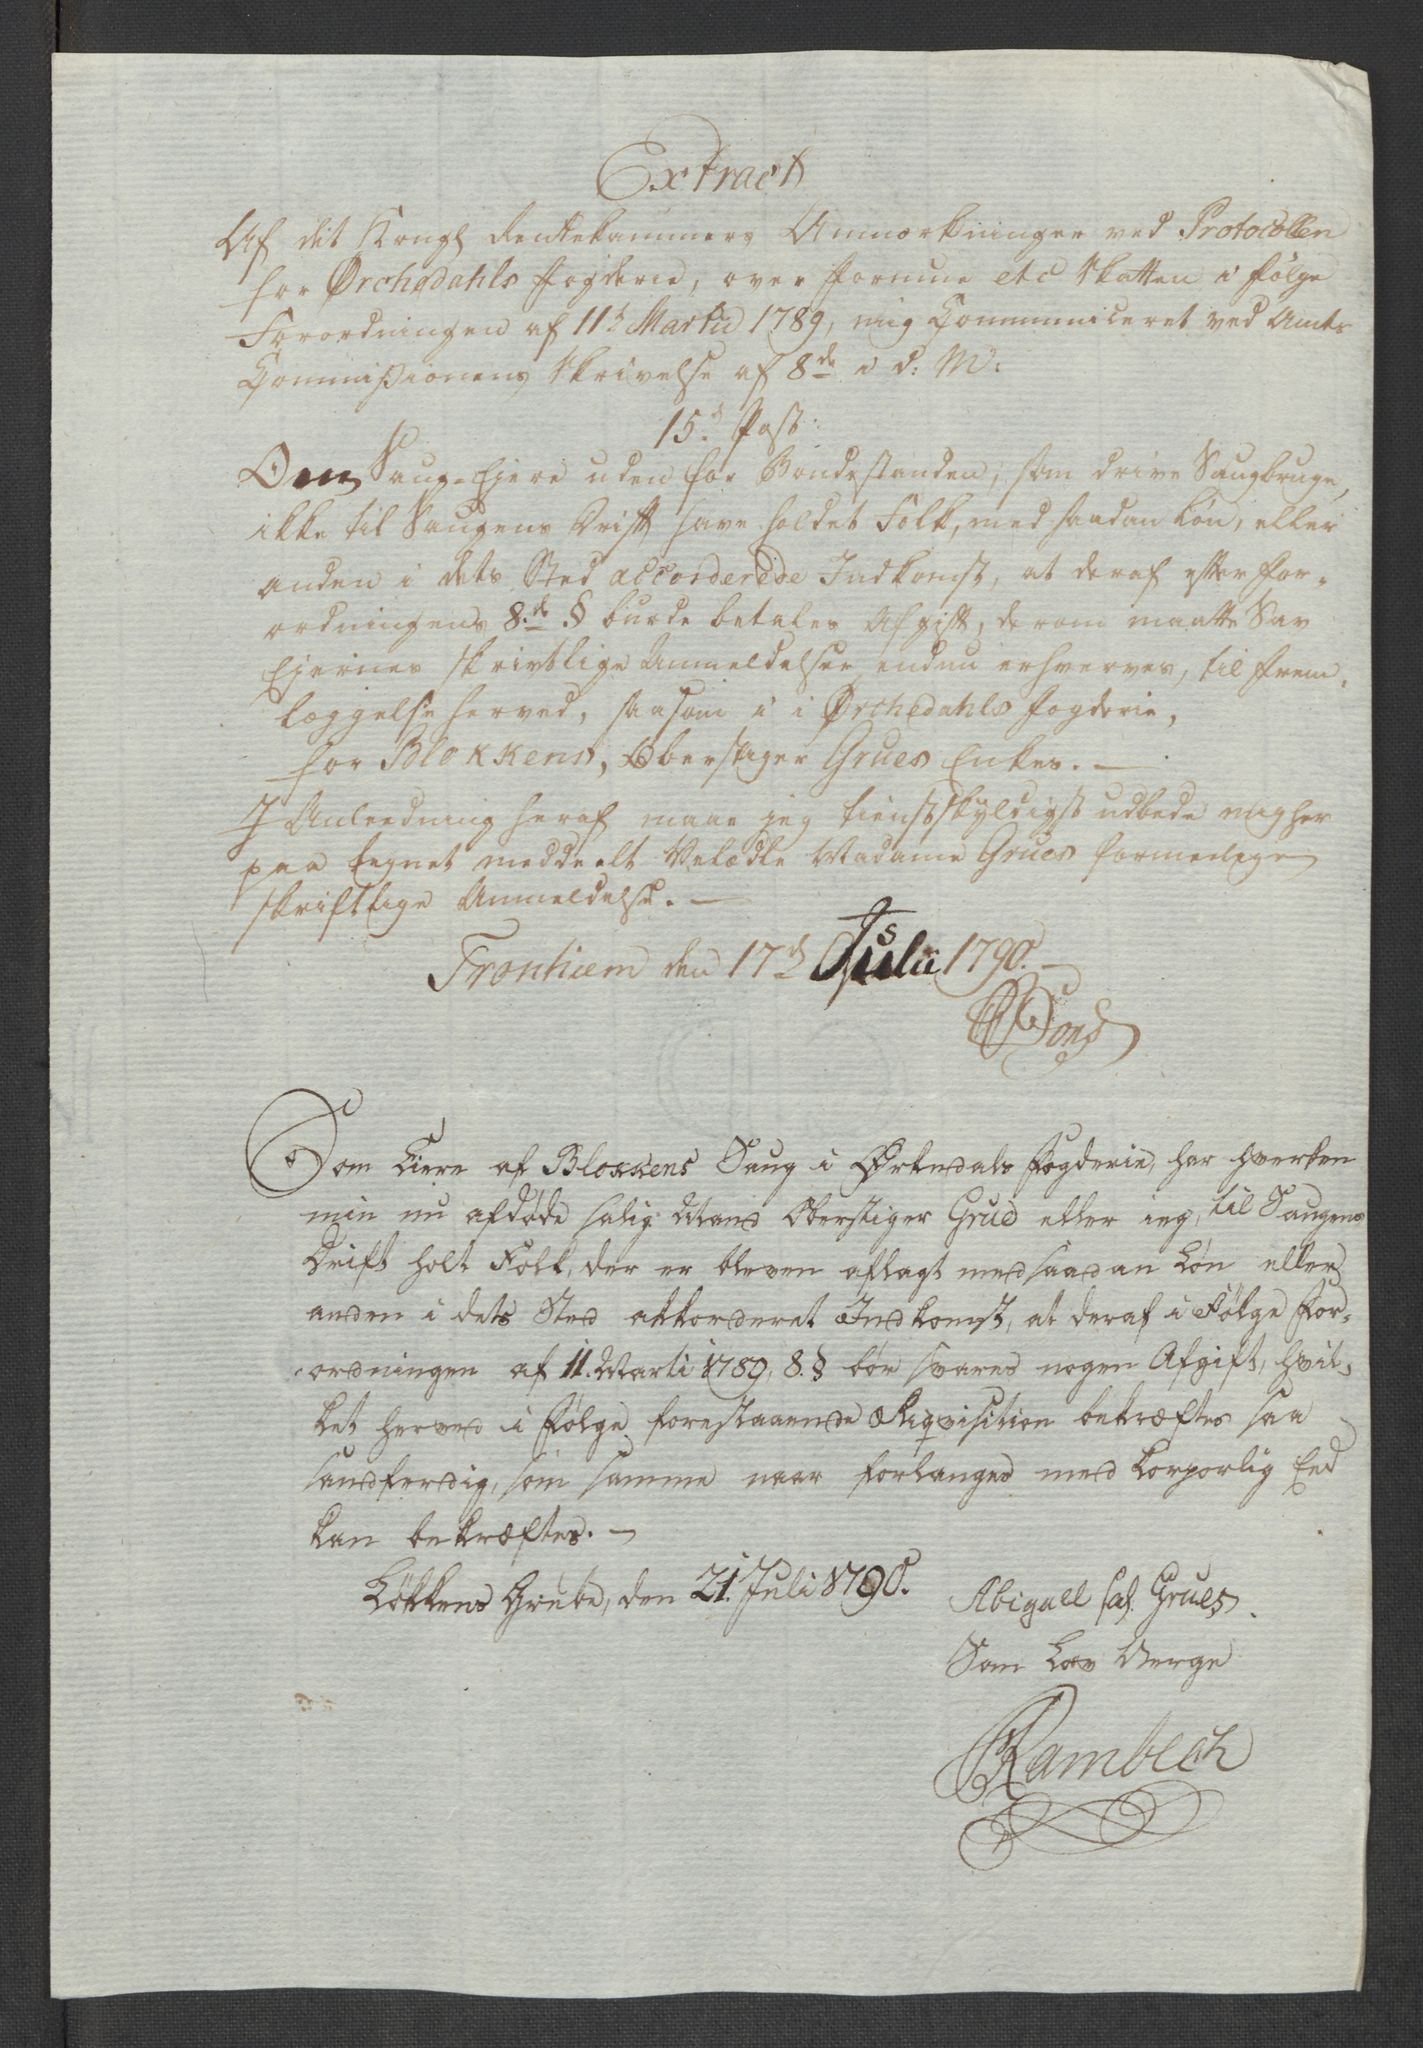 Extract
Af det Kongl Rentekammers Anmærkninger ved Protocollen
for Ørchedahls fogderie, over formue etc Skatten i følge
Forordningen af 11te Martii 1789, mig Communiceret ved Amts
Commißionens Skrivelse af 8de i d: M:
15de Post:
Om Saug-Ejere uden for Bondestanden, som drive Saugbruge,
ikke til Saugens Drift have holdet Folk, med saadan Løn, eller
anden i dets Sted accorderede Indkomst, at deraf efter for-
ordningens 8de § burde betales Afgift, derom maatte Sav
Ejernes skrivtlige Anmeldelser endnu erhverves, til frem-
læggelse herved, saasom i i Ørchedahls fogderie,
for Blokkens, Oberstiger Grues Enkes. —
I Anledning heraf maae jeg tienstskyldigst udbede mig her
paa tegnet meddeelt Velædle Madame Grues formedlege
skriftlige Anmeldelse. —
Tronhiem den 17de Julii 1790. —
Som Eiere af Blokkens Saug i Ørkedals Fogderie, har hverken
min nu afdøde salig Mand Oberstiger Grue eller ieg, til Saugens
Drift holt Folk, der er bleven aflagt med saadan Løn eller
anden i dets Sted akkorderet Indkomst, at deraf i Følge For-
ordningen af 11. Marti 1789, 8. § bør svares nogen Afgift, hvil-
ket herved i Følge forestaaende Reqvisition bekræftes saa
sandferdig, som samme naar forlanges med korporlig Eed
kan bekræftes. —
Løkkens Grube, den 21. Juli 1790.
Abigaell sal. Grues.
Som Lav Verge
Rambech